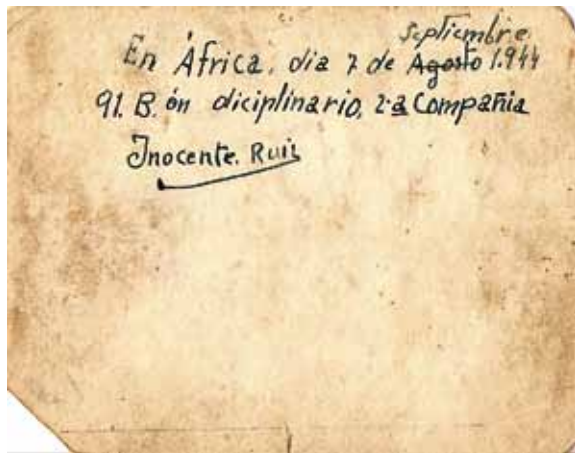 septiembre
En África, dia 7 de Agosto 1.944
91. B. ón diciplinario, 2ª Compañia
Inocente. Ruiz